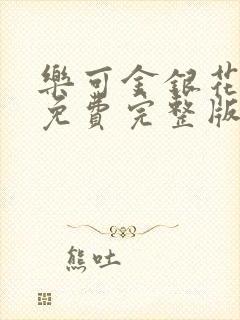 樂可金銀花
免費完整版
熊吐